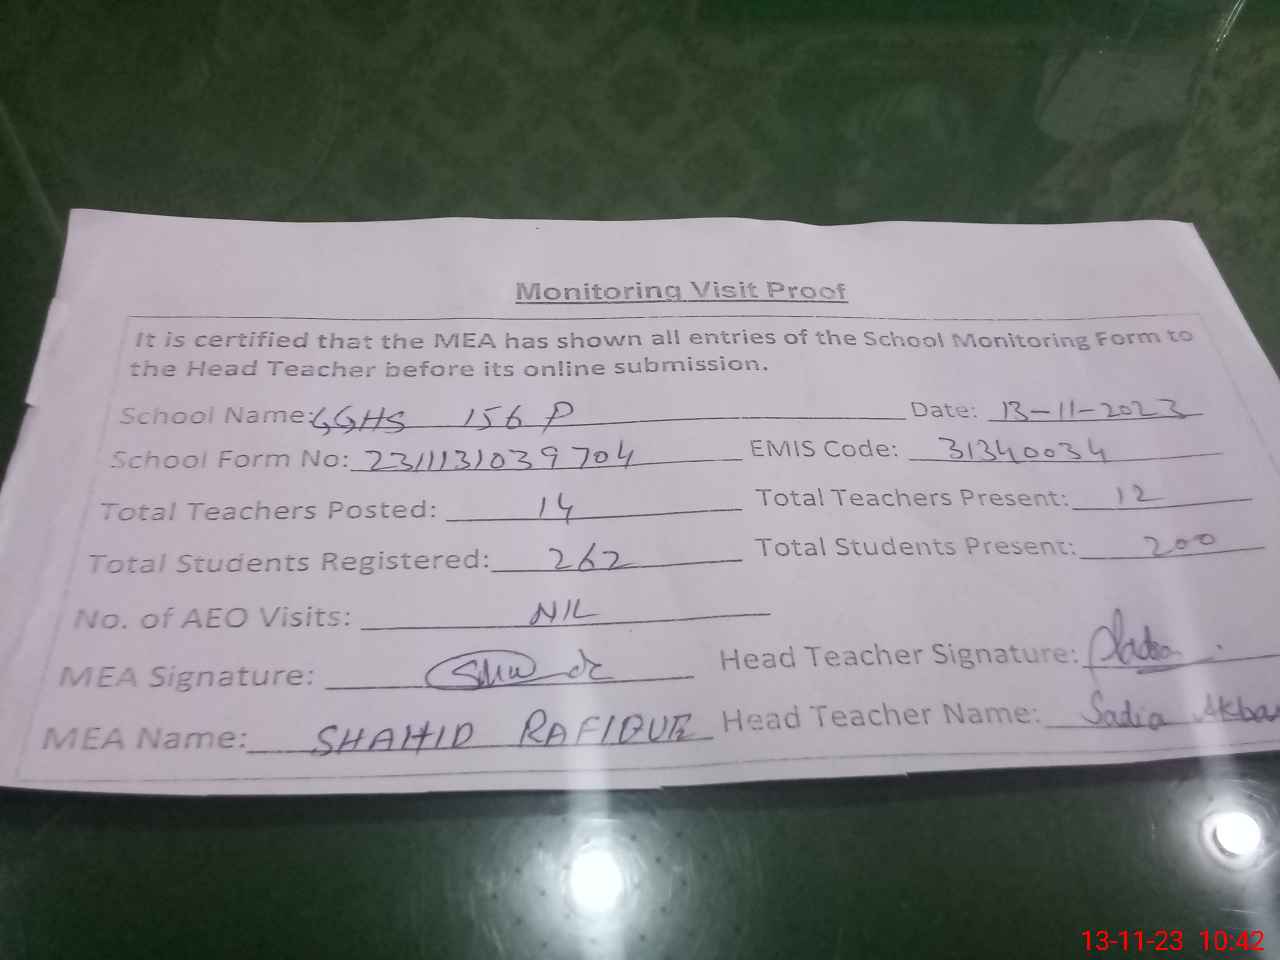 Monitoring Visit Proof
It is certified that the MEA has shown all entries of the School Monitoring Form to
the Head Teacher before its online submission.
School Name: GGHS 156 P Date: 13-11-2023
School Form No: 2311131039704 EMIS Code: 31340034
Total Teachers Posted: 14 Total Teachers Present: 12
Total Students Registered: 262 Total Students Present: 200
No. of AEO Visits: NIL
MEA Signature: Head Teacher Signature:
MEA Name: SHAHID Head Teacher Name: Sadia Akbar
13-11-23 10:42